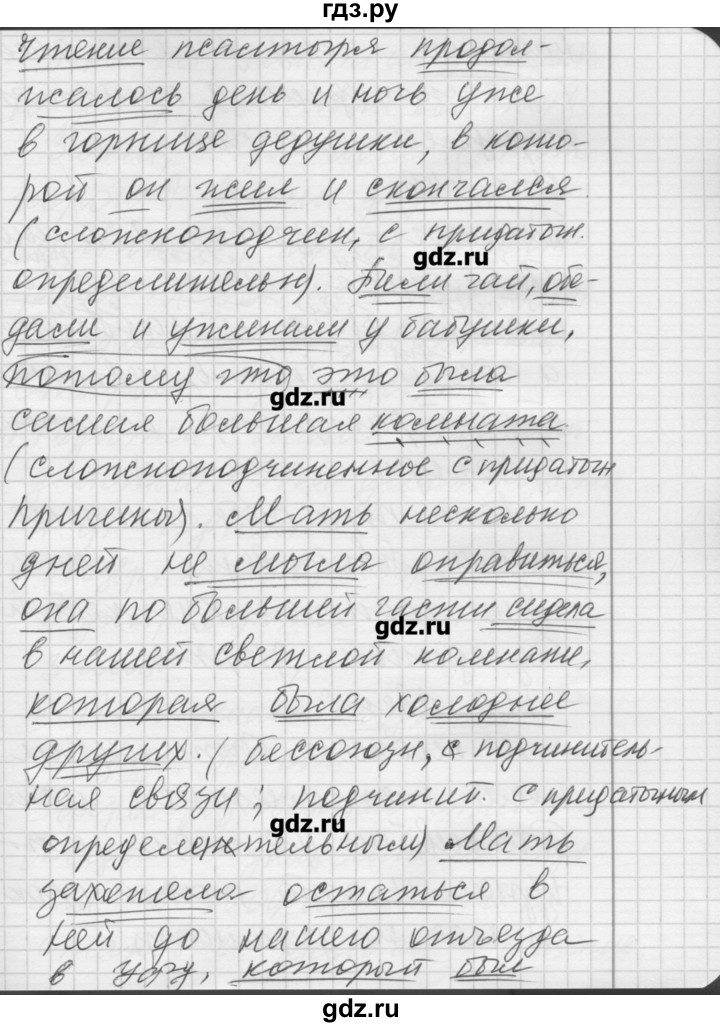 гдз.ру
Чтение псалтыря продол-
жалось день и ночь уже
в горнице дедушки, в кото-
рой он жил и скончался.
(сложноподчин, с придаточн.
gdz.ru
определительн). Пили чай, обе-
дали и ужинали у бабушки,
потому что это была
gdz.ru
самая большая комната.
(сложноподчиненное с придаточн
причины). Мать несколько
дней не могла оправиться,
она по большей части сидела
gdz.ru
в нашей светлой комнате,
которая была холоднее
других. (бессоюзн, с подчинитель-
ная связи; подчинит. с придаточным
gdz.ru
определительным) Мать
захотела остаться в
ней до нашего отъезда
в Уфу, который был
gdz.ru